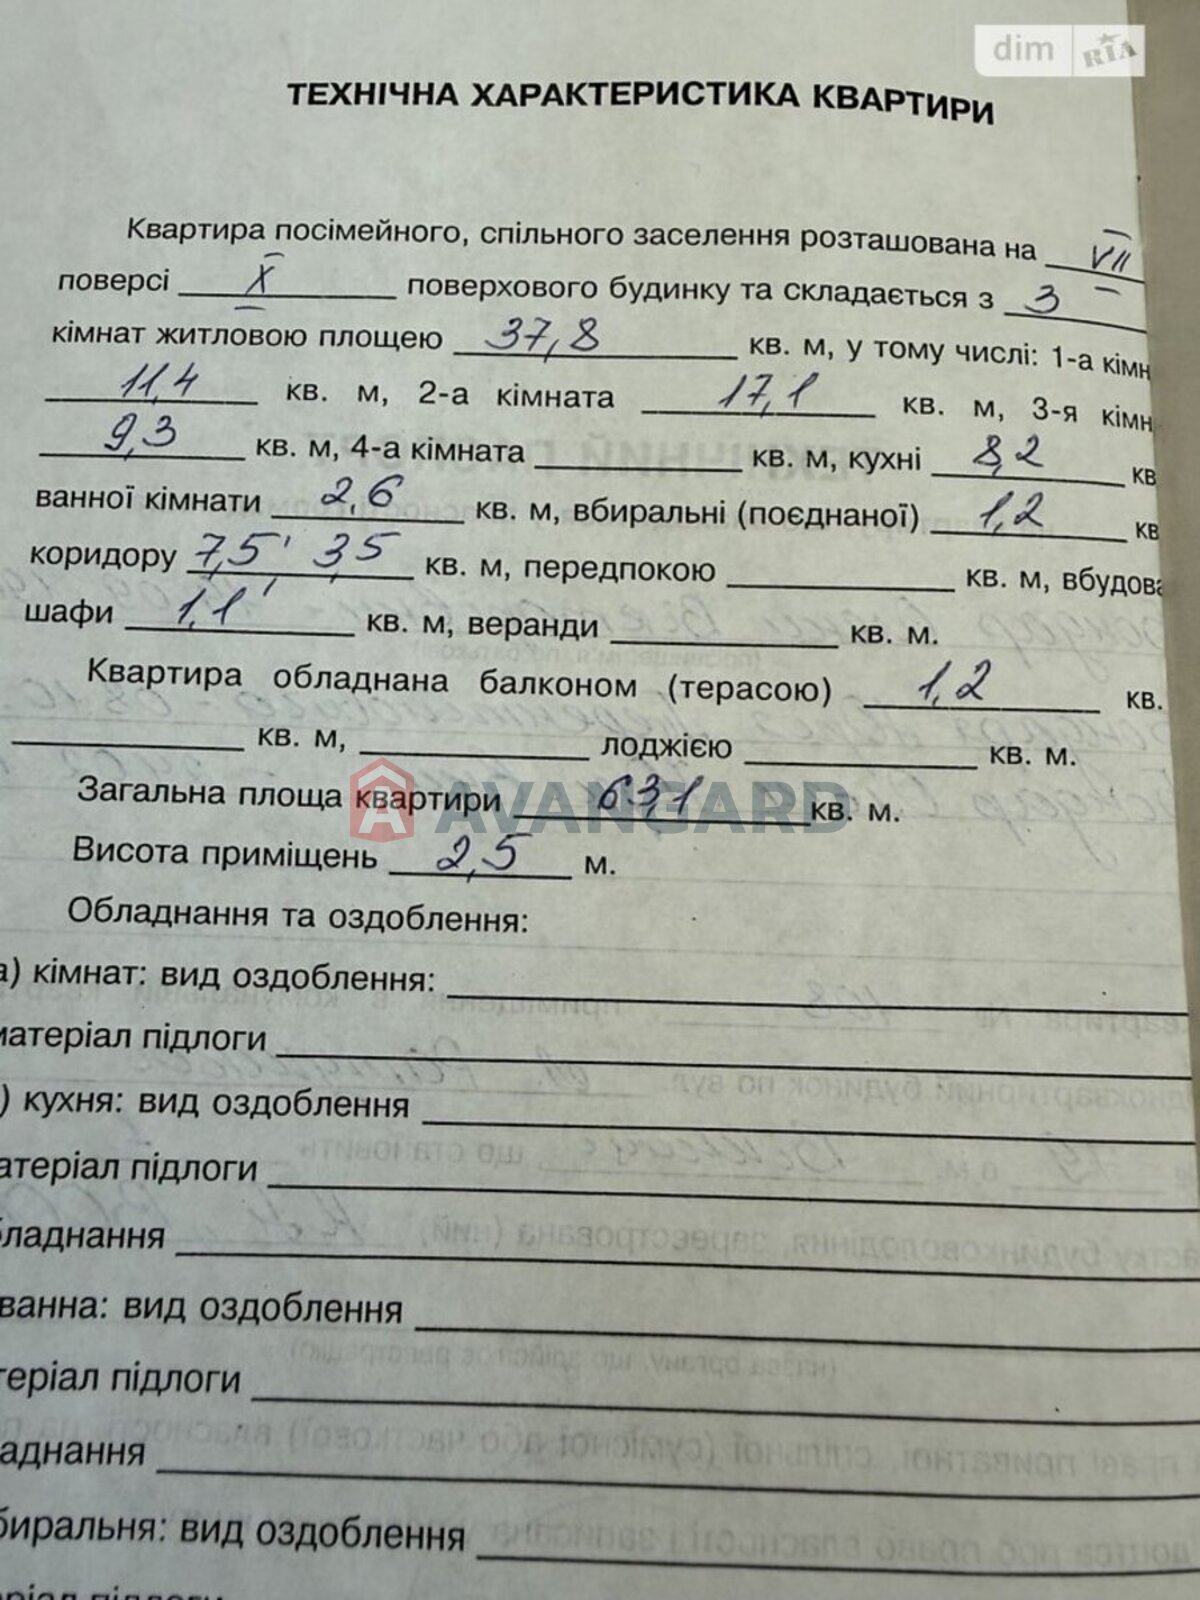 dim RIA
ТЕХНІЧНА ХАРАКТЕРИСТИКА КВАРТИРИ
Квартира посімейного, спільного заселення розташована на VII
поверсі X поверхового будинку та складається з 3
кімнат житловою площею 37,8 кв. м, у тому числі: 1-а кімн
11,4 кв. м, 2-а кімната 17,1 кв. м, 3-я кімн
9,3 кв. м, 4-а кімната кв. м, кухні 8,2 кв
ванної кімнати 2,6 кв. м, вбиральні (поєднаної) 1,2 кв
коридору 7,5, 3,5 кв. м, передпокою кв. м, вбудова
шафи 1,1 кв. м, веранди кв. м.
Квартира обладнана балконом (терасою) 1,2 кв.
кв. м, лоджією кв. м.
Загальна площа квартири 63,1 кв. м.
AVANGARD
Висота приміщень 2,5 м.
Обладнання та оздоблення:
а) кімнат: вид оздоблення:
матеріал підлоги
) кухня: вид оздоблення
атеріал підлоги
бладнання
ванна: вид оздоблення
теріал підлоги
аднання
биральня: вид оздоблення
ріал підлоги